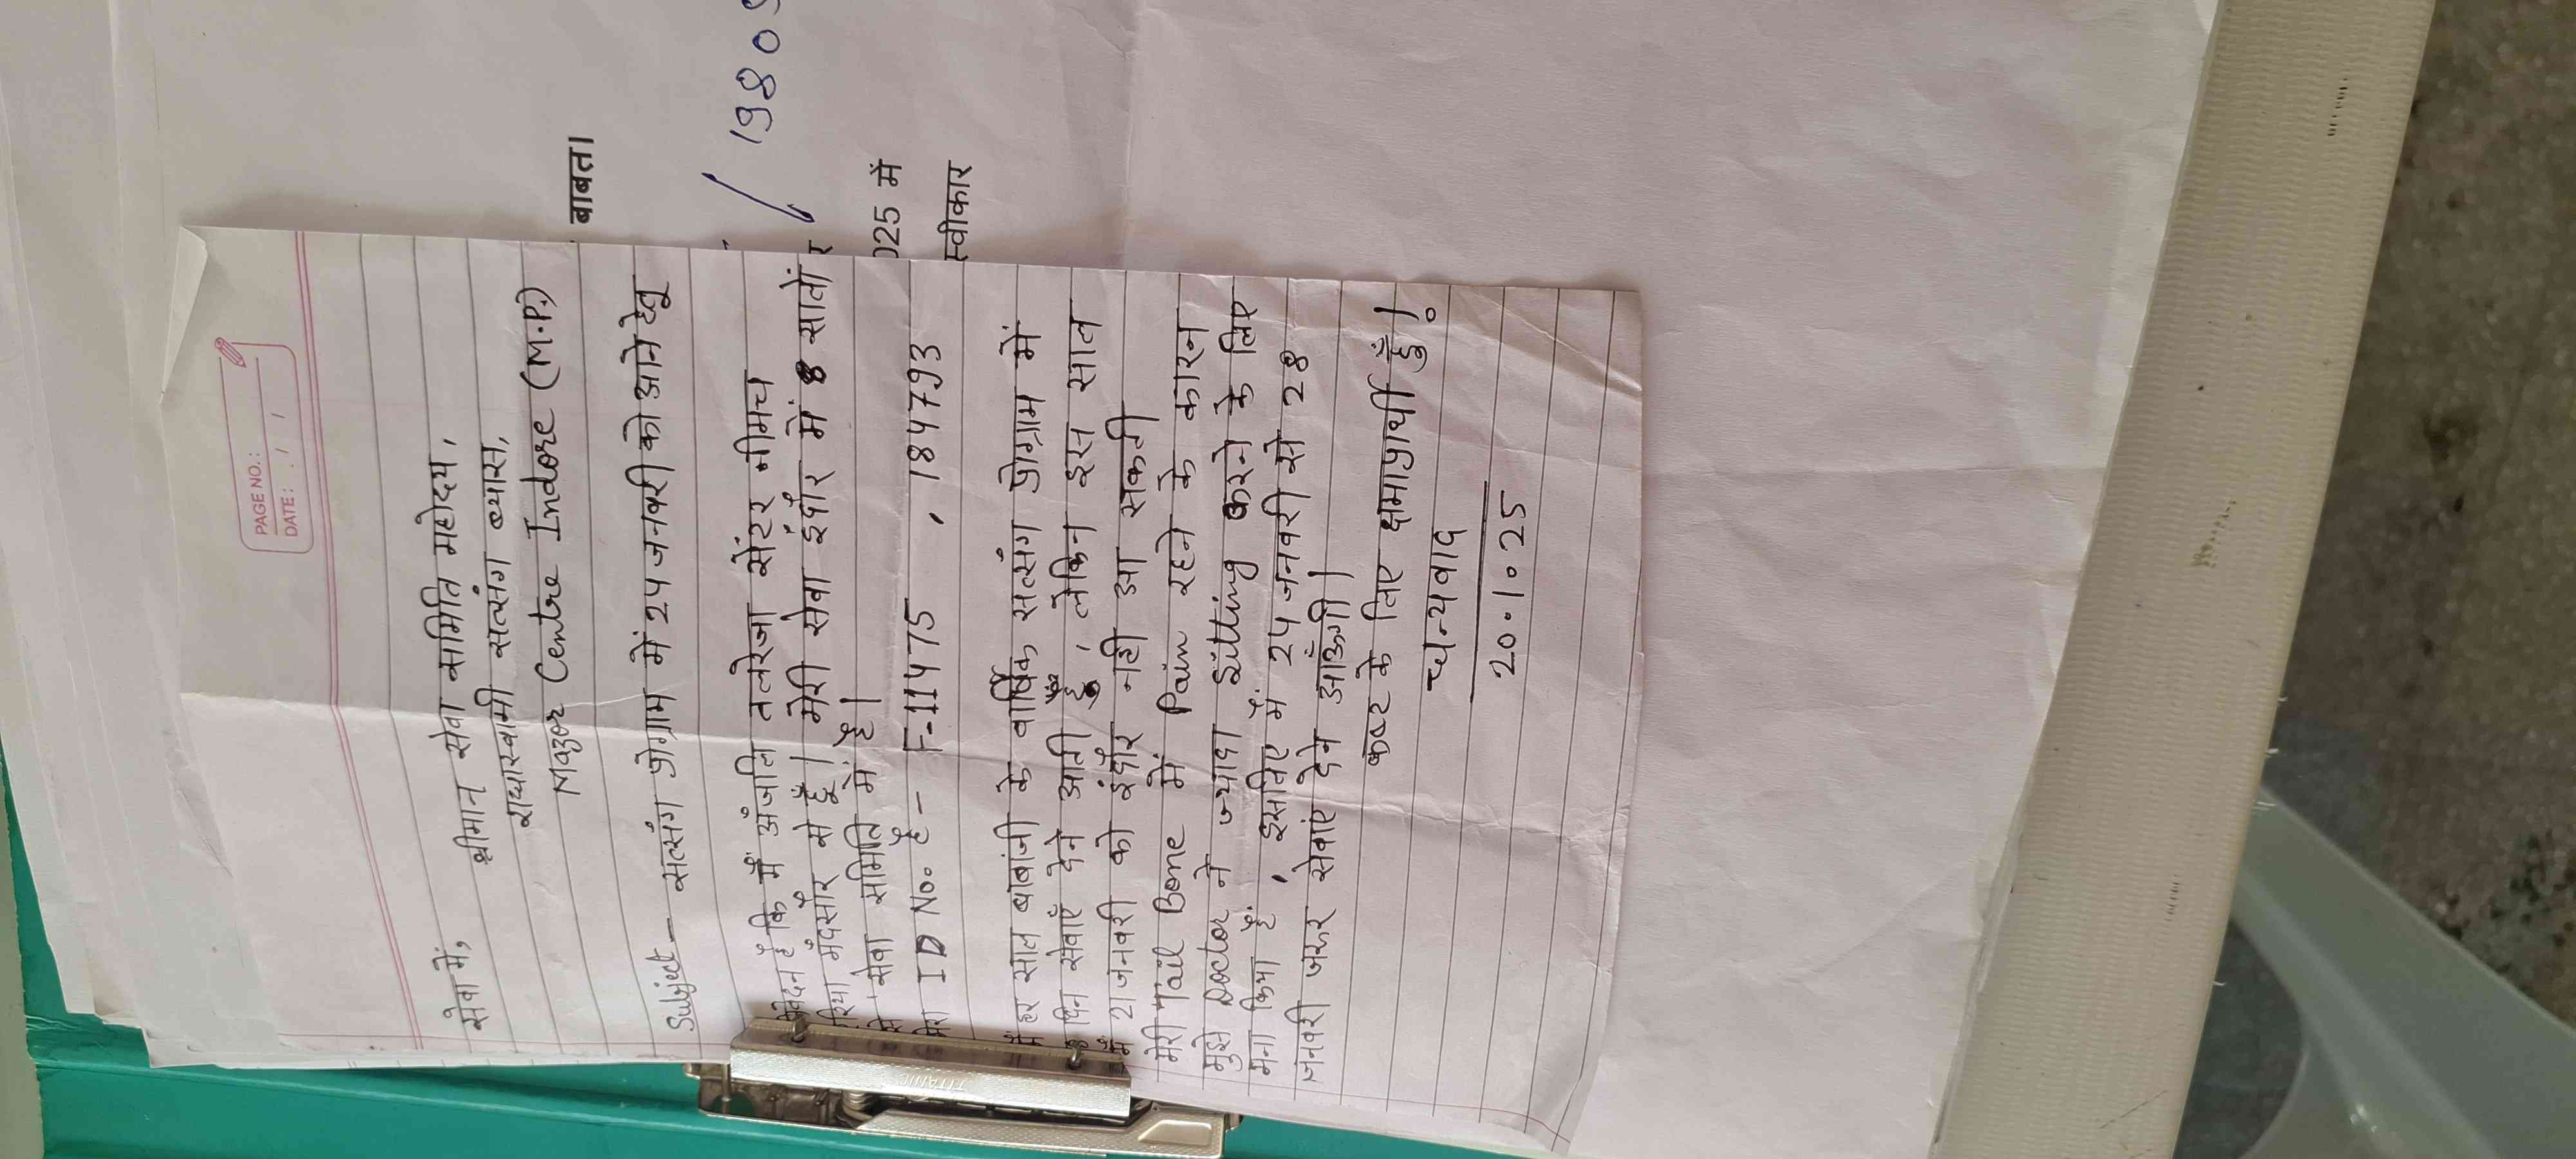 PAGE NO.:
DATE: / /
सेवा में,
श्रीमान सेवा समिति महोदय,
राधास्वामी सत्संग ब्यास,
Major Centre Indore (M.P.)
Subject - सत्संग प्रोग्राम में 25 जनवरी को आने हेतू
निवेदन है कि मैं अंजलि तलरेजा सेंटर नीमच
एरिया मंदसौर से हूँ। मेरी सेवा इंदौर में 8 सालों
से सेवा समिति में है।
मेरा ID No. है - F-11475 , 1847793
मैं हर साल बाबाजी के वार्षिक सत्संग प्रोग्राम में
दिन सेवाएँ देने आती हूँ, लेकिन इस साल
मैं 21 जनवरी को इंदौर नही आ सकती
मेरी Tail Bone में Pain रहने के कारन
मुझे Doctor ने ज्यादा Sitting करने के लिए
मना किया हैं, इसलिए में 25 जनवरी से 28
जनवरी जरूर सेवाएं देने आऊँगी।
कष्ट के लिए क्षमाप्रार्थी हुँ।
धन्यवाद
20.1.25
बाबत।
/ 1980
र
025 में
स्वीकार
TITANIC